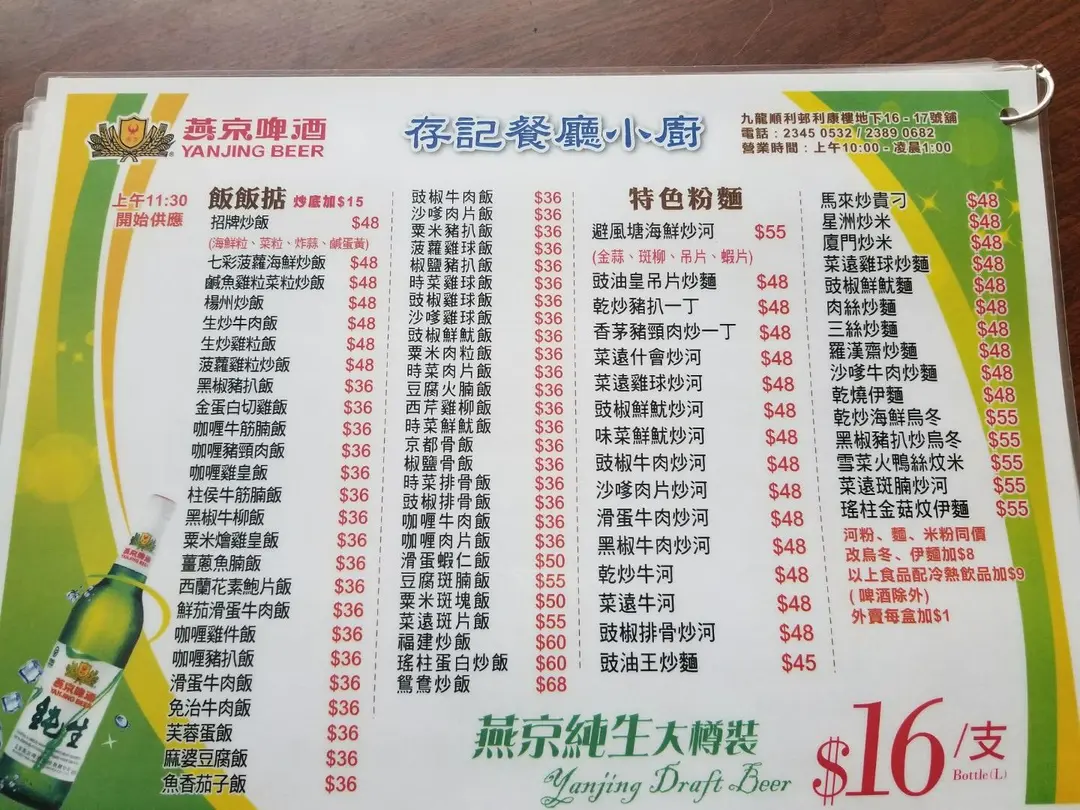 燕京啤酒
YANJING BEER
存記餐廳小廚
九龍順利邨利康樓地下16-17號舖
電話：2345 0532 / 2389 0682
營業時間：上午10:00 - 凌晨1:00
上午11:30
開始供應
飯飯掂 炒底加$15
招牌炒飯 $48
(海鮮粒、菜粒、炸蒜、鹹蛋黃)
七彩菠蘿海鮮炒飯 $48
鹹魚雞粒菜粒炒飯 $48
楊州炒飯 $48
生炒牛肉飯 $48
生炒雞粒飯 $48
菠蘿雞粒炒飯 $48
黑椒豬扒飯 $36
金蛋白切雞飯 $36
咖喱牛筋腩飯 $36
咖喱豬頸肉飯 $36
咖喱雞皇飯 $36
柱侯牛筋腩飯 $36
黑椒牛柳飯 $36
粟米燴雞皇飯 $36
薑蔥魚腩飯 $36
西蘭花素鮑片飯 $36
鮮茄滑蛋牛肉飯 $36
咖喱雞件飯 $36
咖喱豬扒飯 $36
滑蛋牛肉飯 $36
免治牛肉飯 $36
芙蓉蛋飯 $36
麻婆豆腐飯 $36
魚香茄子飯 $36
豉椒牛肉飯 $36
沙嗲肉片飯 $36
粟米豬扒飯 $36
菠蘿雞球飯 $36
椒鹽豬扒飯 $36
時菜雞球飯 $36
豉椒雞球飯 $36
沙嗲雞球飯 $36
豉椒鮮魷飯 $36
粟米肉粒飯 $36
時菜肉片飯 $36
豆腐火腩飯 $36
西芹雞柳飯 $36
時菜鮮魷飯 $36
京都骨飯 $36
椒鹽骨飯 $36
時菜排骨飯 $36
豉椒排骨飯 $36
咖喱牛肉飯 $36
咖喱肉片飯 $36
滑蛋蝦仁飯 $50
豆腐斑腩飯 $55
粟米斑塊飯 $50
菜遠斑片飯 $55
福建炒飯 $60
瑤柱蛋白炒飯 $60
鴛鴦炒飯 $68
特色粉麵
避風塘海鮮炒河 $55
(金蒜、斑柳、吊片、蝦片)
豉油皇吊片炒麵 $48
乾炒豬扒一丁 $48
香茅豬頸肉炒一丁 $48
菜遠什會炒河 $48
菜遠雞球炒河 $48
豉椒鮮魷炒河 $48
味菜鮮魷炒河 $48
豉椒牛肉炒河 $48
沙嗲肉片炒河 $48
滑蛋牛肉炒河 $48
黑椒牛肉炒河 $48
乾炒牛河 $48
菜遠牛河 $48
豉椒排骨炒河 $48
豉油王炒麵 $45
馬來炒貴刁 $48
星洲炒米 $48
廈門炒米 $48
菜遠雞球炒麵 $48
豉椒鮮魷麵 $48
肉絲炒麵 $48
三絲炒麵 $48
羅漢齋炒麵 $48
沙嗲牛肉炒麵 $48
乾燒伊麵 $48
乾炒海鮮烏冬 $55
黑椒豬扒炒烏冬 $55
雪菜火鴨絲炆米 $55
菜遠斑腩炒河 $55
瑤柱金菇炆伊麵 $55
河粉、麵、米粉同價
改烏冬、伊麵加$8
以上食品配冷熱飲品加$9
(啤酒除外)
外賣每盒加$1
燕京啤酒
YANJING BEER
純生
燕京純生大樽裝
Yanjing Draft Beer
$16/支
Bottle(L)